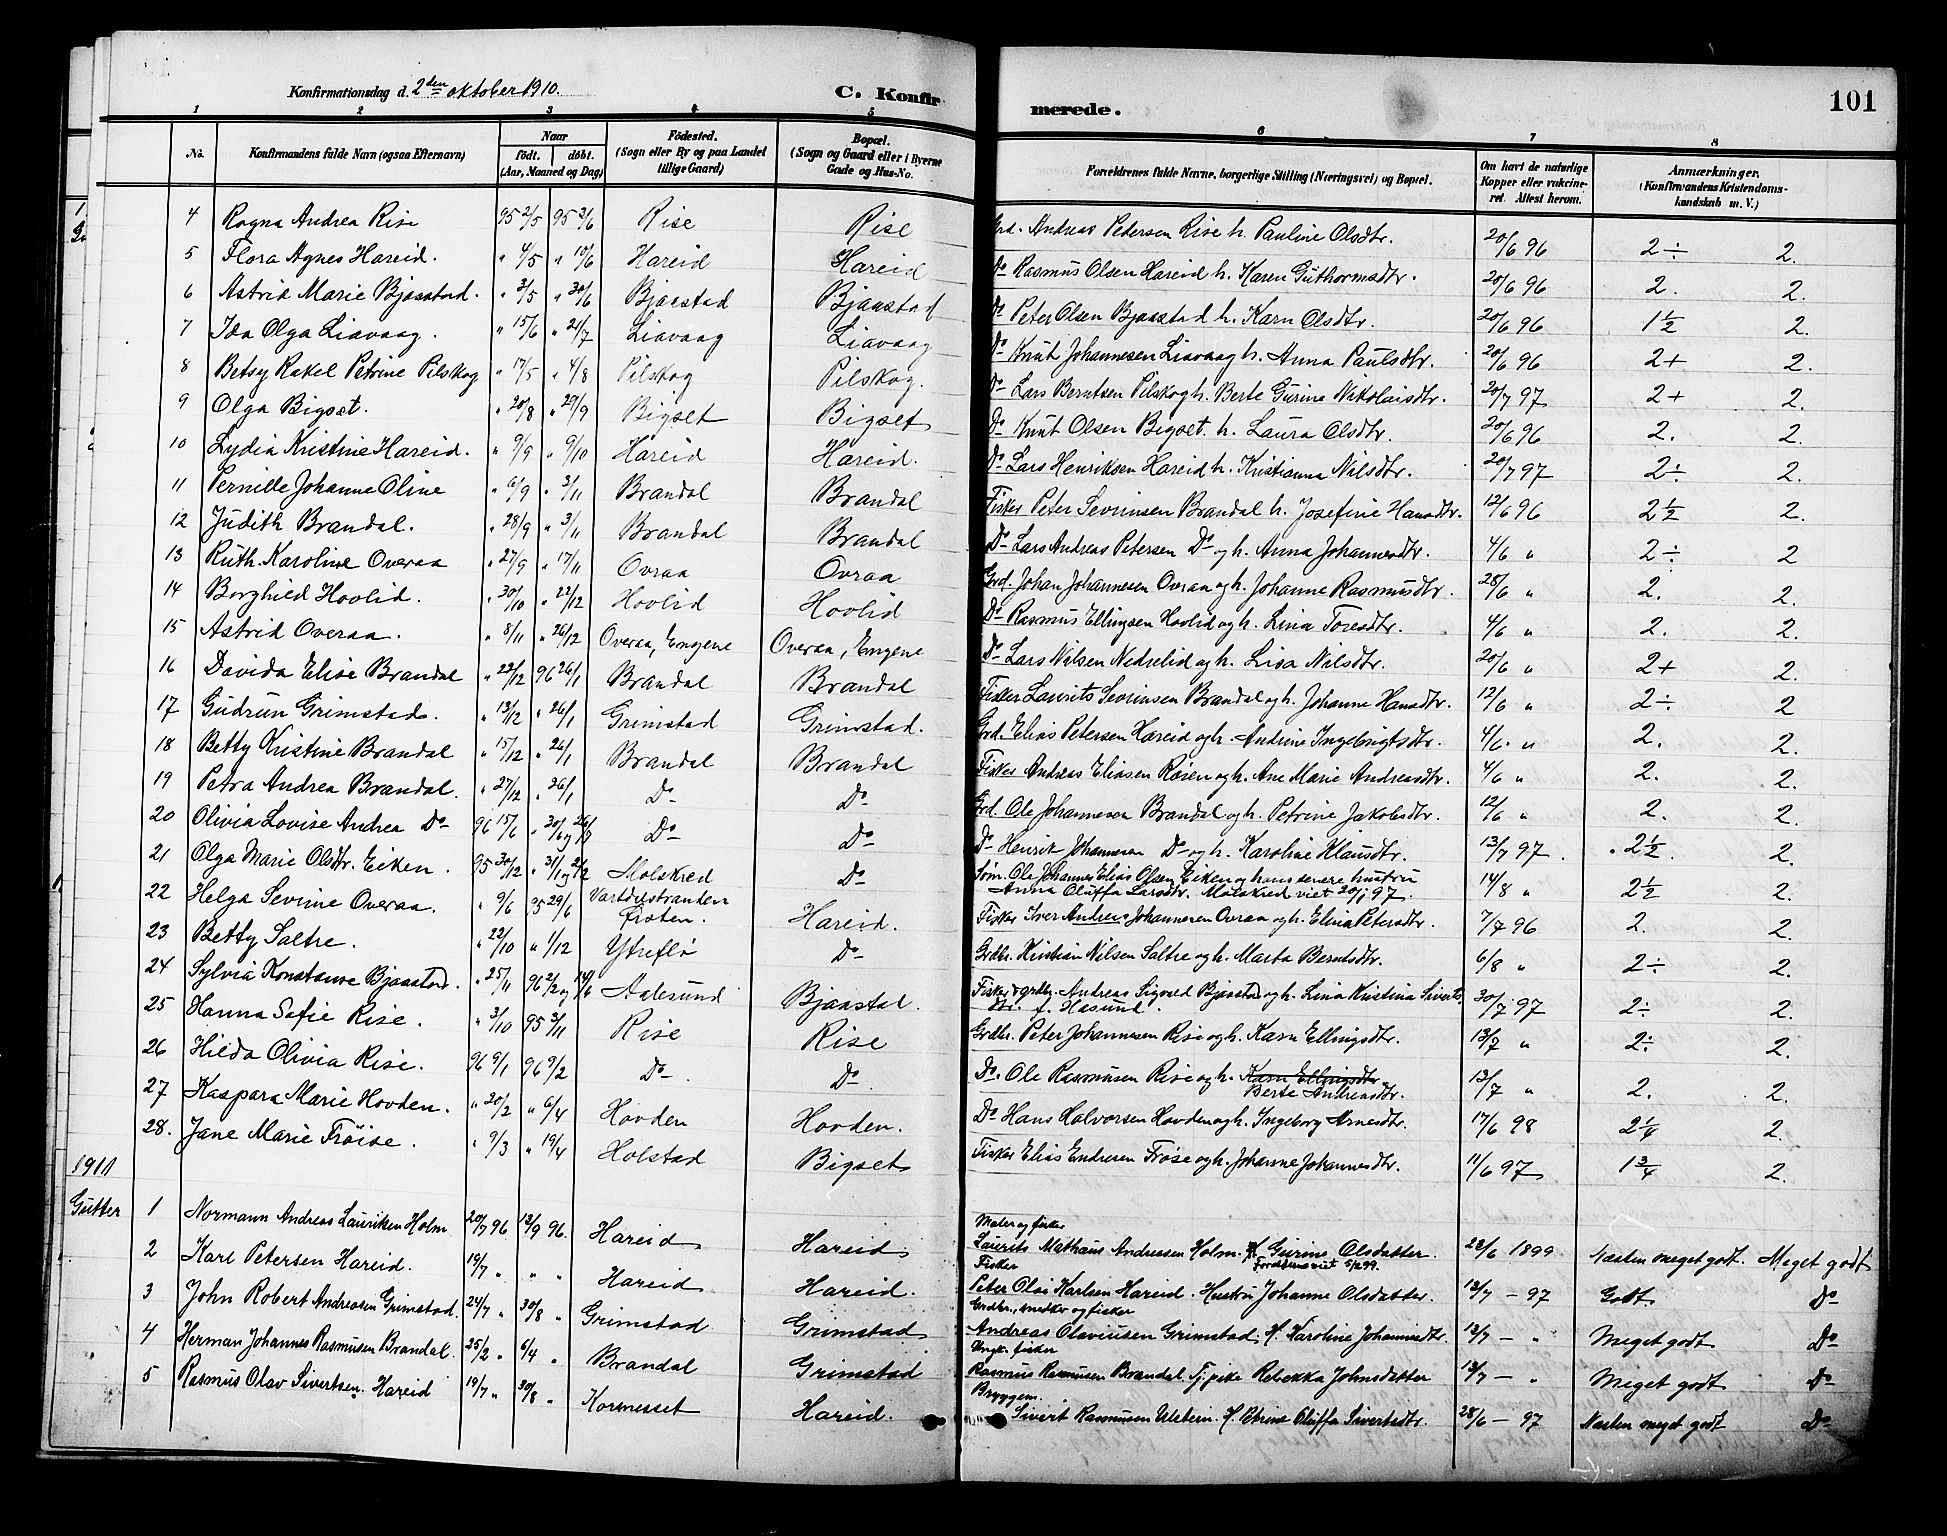 Konfirmationsdag d. 2den oktober 1910. C. Konfirmerede. 101
1 2 3 4 5 6 7 8
No. Konfirmandens fulde Navn (ogsaa Efternavn) Naar født. døbt. (Aar, Maaned og Dag) Fødested. (Sogn eller By og paa Landet tillige Gaard) Bopæl. (Sogn og Gaard eller i Byerne Gade og Hus-No. Forældrenes fulde Navne, borgerlige Stilling (Næringsvei) og Bopæl. Om havt de naturlige Kopper eller vakcineret. Attest herom. Anmærkninger. (Konfirmandens Kristendomskundskab m. V.)
4 Ragna Andrea Rise 95 2/5 95 3/6 Rise Rise Grd. Andreas Pedersen Rise h. Pauline Olsdtr. 20/6 96 2÷ 2.
5 Flora Agnes Hareid. " 4/5 " 10/6 Hareid Hareid Do Rasmus Olsen Hareid h. Karen Guthormsdtr. 20/6 96 2. 2.
6 Astrid Marie Bjaastad. " 3/5 " 30/6 Bjaastad Bjaastad Do Peter Olsen Bjaastad h. Karn Olsdtr. 20/6 96 1½ 2.
7 Ida Olga Liavaag. " 15/6 " 21/7 Liavaag Liavaag Do Knut Johannesen Liavaag h. Anna Paulsdtr. 20/6 96 2+ 2.
8 Betsy Rakel Petrine Pilskog " 17/5 " 4/8 Pilskog Pilskog. Do Lars Berntsen Pilskog h. Berte Gurine Nikolaisdtr. 20/7 97 2+ 2.
9 Olga Bigset. " 20/8 " 29/9 Bigset Bigset Do Knut Olsen Bigset. h. Laura Olsdtr. 20/6 96 2. 2.
10 Lydia Kristine Hareid. " 9/9 " 9/10 Hareid Hareid. Do Lars Henriksen Hareid h. Kristianna Nilsdtr. 20/7 97 2÷ 2.
11 Pernille Johanne Oline " 6/9 " 3/11 Brandal Brandal Fisker Peter Sevrinsen Brandal h. Josefine Hansdtr. 12/6 96 2½ 2.
12 Judith Brandal. " 28/9 " 3/11 Brandal Brandal Do Lars Andreas Petersen Do og h. Anna Johannesdtr. 4/6 " 2÷ 2
13 Ruth Karoline Overaa " 27/9 " 17/11 Ovraa Ovraa Grd. Johan Johannesen Ovraa og h. Johanne Rasmusdtr. 28/6 " 2. 2.
14 Borghild Hovlid. " 30/10 " 22/12 Hovlid Hovlid Do Rasmus Ellingsen Hovlid og h. Lina Toresdtr. 4/6 " 2. 2.
15 Astrid Overaa. " 8/11 " 26/12 Overaa, Engene Overaa, Engene Do Lars Nilsen Nedrelid og h. Lisa Nilsdtr. 20/6 " 2+ 2.
16 Davida Elise Brandal " 22/12 96 26/1 Brandal Brandal Fisker Laurits Sevrinsen Brandal og h. Johanne Hansdtr. 12/6 " 2÷ 2
17 Gudrun Grimstad. " 13/12 " 26/1 Grimstad Grimstad. Grd. Elias Petersen Hareid og h. Andrine Ingebrigtsdtr. 4/6. " 2. 2.
18 Betty Kristine Brandal " 15/12 " 26/1 Brandal Brandal Fisker Andreas Eliasen Røren og h. Ane Marie Andreasdtr. 4/6 " 2. 2.
19 Petra Andrea Brandal. " 27/12 " 26/1 Do Do Grd. Ole Johannesen Brandal og h. Petrine Jakobsdtr. 12/6 " 2. 2.
20 Olivia Lovise Andrea Do 96 15/6 " 30/6 og 26/7 Do Do Do Henrik Johannesen Do og h. Karoline Klausdtr. 13/7 97. 2½. 2.
21 Olga Marie Olsdtr. Eiken. 95 30/12 " 31/1 og 2/2 Molskred Do Søm. Ole Johannes Elias Olsen Eiken og hans senere hustru
Anna Oluffa Larsdtr. Molskred viet 20/1 97. 14/8 " 2½ 2.
22 Helga Sevrine Overaa. " 9/6 95 29/6 Vartdalstranden Frøten. Hareid. Fisker Iver Andreas Johannesen Ovraa og h. Elina Petersdtr. 7/7 96 2. 2.
23 Betty Saltre. " 22/10 " 1/12 Ytreflø Do Grdbr. Kristian Nilsen Saltre og h. Marta Berntsdtr. 6/8 " 2÷ 2.
24 Sylvia Konstanse Bjaastad. " 25/11 96 2/2 og 14/6 Aalesund Bjaastad. Fisker & grdbr. Andreas Sigvald Bjaastad og h. Lina Kristina Siverts
dtr. f. Hasund. 30/7 97 2÷ 2.
25 Hanna Sofie Rise. " 3/10 95 3/11 Rise Rise Grdbr. Peter Johannesen Rise og h. Karn Ellingsdtr. 13/7 " 2÷ 2.
26 Hilda Olivia Rise. 96 9/1 96 9/2 Do Do Do. Ole Rasmusen Rise og h. Karn Ellingsdtr
Berte Andreasdtr. 13/7 " 2. 2.
27 Kaspara Marie Hovden. " 20/2 " 6/4 Hovden Hovden. Do Hans Halvorsen Hovden og h. Ingeborg Arnesdtr. 17/6 98 2¼ 2.
28. Jane Marie Frøise. " 9/3 " 19/4 Holstad Bigset Fisker Elias Endresen Frøse og h. Johanne Johannesdtr. 11/6 97 1¾ 2.
1911
Gutter 1 Normann Andreas Lauritsen Holm 20/7 96 13/9 96. Hareid Hareid Maler og fisker
Laurits Mathæus Andreasen Holm. H. Gurine Olsdatter. 23/6 1899 Næsten meget godt. Meget godt
Forældrene viet 5/2 99.
2 Karl Petersen Hareid. 19/7 " " " Hareid Hareid. Fisker
Peter Olai Karlsen Hareid. Hustru Johanne Olsdatter. 13/7 - 97 Godt. Do
3 John Robert Andreasen Grimstad. 24/7 " 30/8 " Grimstad Grimstad Grdbr., snedker og fisker
Andreas Olaviusen Grimstad, H. Karoline Johannesdtr. 13/7 - " Meget godt Do
4 Herman Johannes Rasmusen Brandal. 25/2 " 6/4 " Brandal Grimstad Ungk. fisker
Rasmus Rasmusen Brandal Tj.pike Rebekka Johnsdatter 13/7 - " Meget godt Do
5 Rasmus Olav Sivertsen Hareid 19/7 " 30/8 " Kornesset Hareid. Bryggem.
Sivert Rasmusen Ulstein. H. Petrine Oluffa Sivertsdtr. 28/6 - 97 Næsten meget godt Do